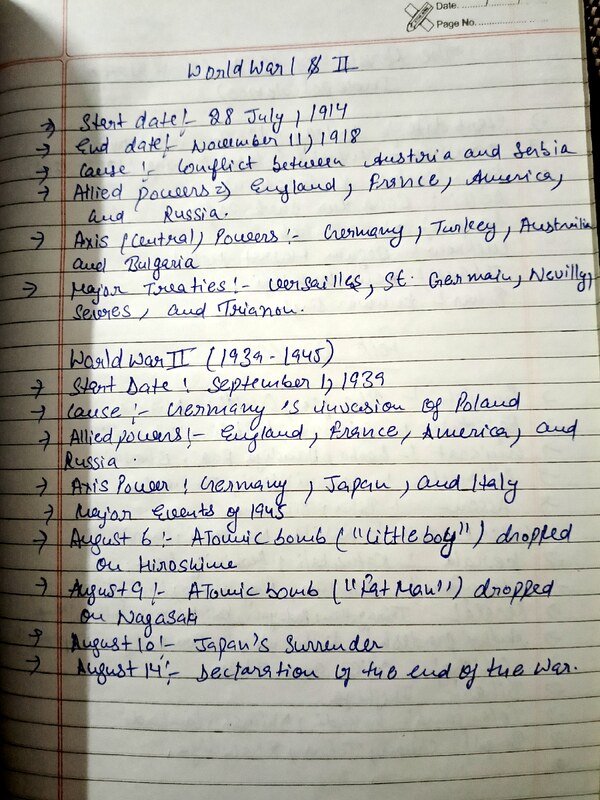 Date. ......./......./.......
Page No. ........................
World War I & II
→ Start date:- 28 July, 1914
→ End date:- November 11, 1918
→ Cause:- Conflict between Austria and Serbia
→ Allied powers => England, France, America,
and Russia.
→ Axis (Central) Powers:- Germany, Turkey, Austrilia
and Bulgaria
→ Major Treaties:- Versailles, St. Germain, Nevilly,
Sevres, and Trianon.
World War II (1939-1945)
→ Start Date: September 1, 1939
→ Cause:- Germany's invasion of Poland
→ Allied powers:- England, France, America, and
Russia.
→ Axis Power: Germany, Japan, and Italy
→ Major Events of 1945
→ August 6:- Atomic bomb ("Little boy") dropped
on Hiroshime
→ August 9:- Atomic bomb ("Fat Man") dropped
on Nagasaki
→ August 10:- Japan's Surrender
→ August 14:- Declaration of the end of the War.